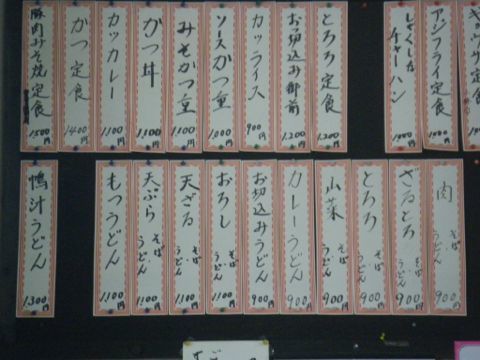 アジフライ定食
チャーハン
とろろ定食 1200円
お切込み御前 1200円
カツライス 900円
ソースかつ重 1000円
みそかつ重 1100円
かつ丼 1100円
カツカレー 1100円
かつ定食 1400円
豚肉みそ焼定食 1500円
肉 そば うどん 900円
ざるとろ そば うどん 900円
とろろ そば うどん 900円
山菜 そば うどん 900円
カレーうどん 900円
お切込みうどん 900円
おろし そば うどん 1100円
天ざる そば うどん 1100円
天ぷら そば うどん 1100円
もつうどん 1100円
鴨汁うどん 1300円